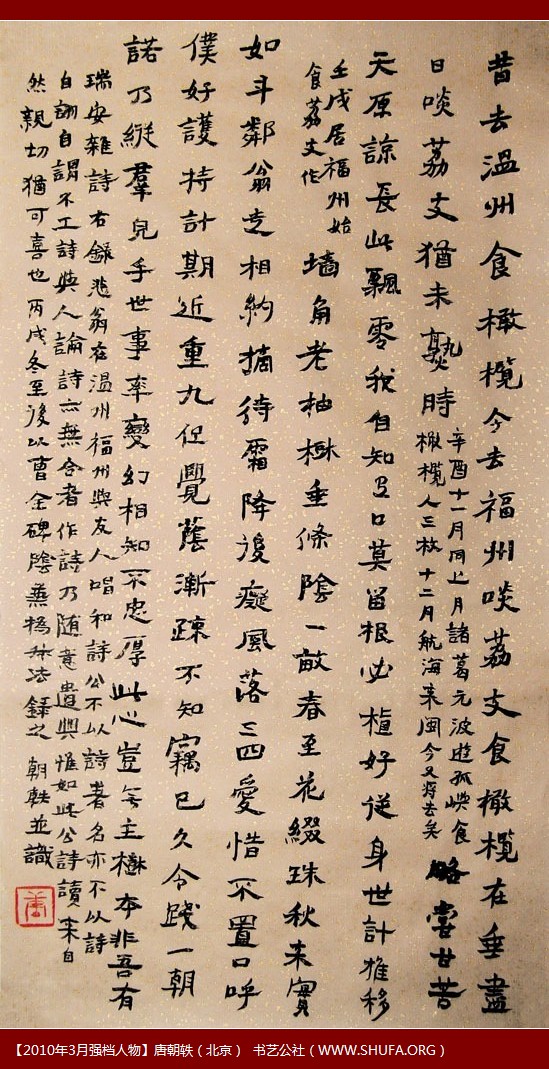 昔去溫州食橄欖今去福州啖荔支食橄欖在垂盡
日啖荔支猶未熟時 辛酉十一月同上月諸葛元波遊孤嶼食
橄欖人三枚十二月航海來閩今又將去矣 略嘗甘苦
天原諒長此飄零我自知且口莫留根必植好從身世計推移
壬戌居福州始
食荔支作 墻角老柚樹垂條陰一畝春至花綴珠秋來實
如斗鄰翁走相約摘待霜降後癡風落三四愛惜不置口呼
僕好護持計期近重九但覺蔭漸疎不知竊已久今踐一朝
諾乃縱群兒手世事率變幻相知不忠厚此心豈無主樹本非吾有
瑞安雜詩右錄悲翁在溫州福州與友人唱和詩公不以詩著名亦不以詩
自詡自謂不工詩與人論詩亦無合者作詩乃隨意遣興惟如此公詩讀來自
然親切猶可喜也丙戌冬至後以曹全碑陰兼楊法錄之 朝軼並識
【2010年3月强档人物】唐朝轶（北京） 书艺公社（WWW.SHUFA.ORG）